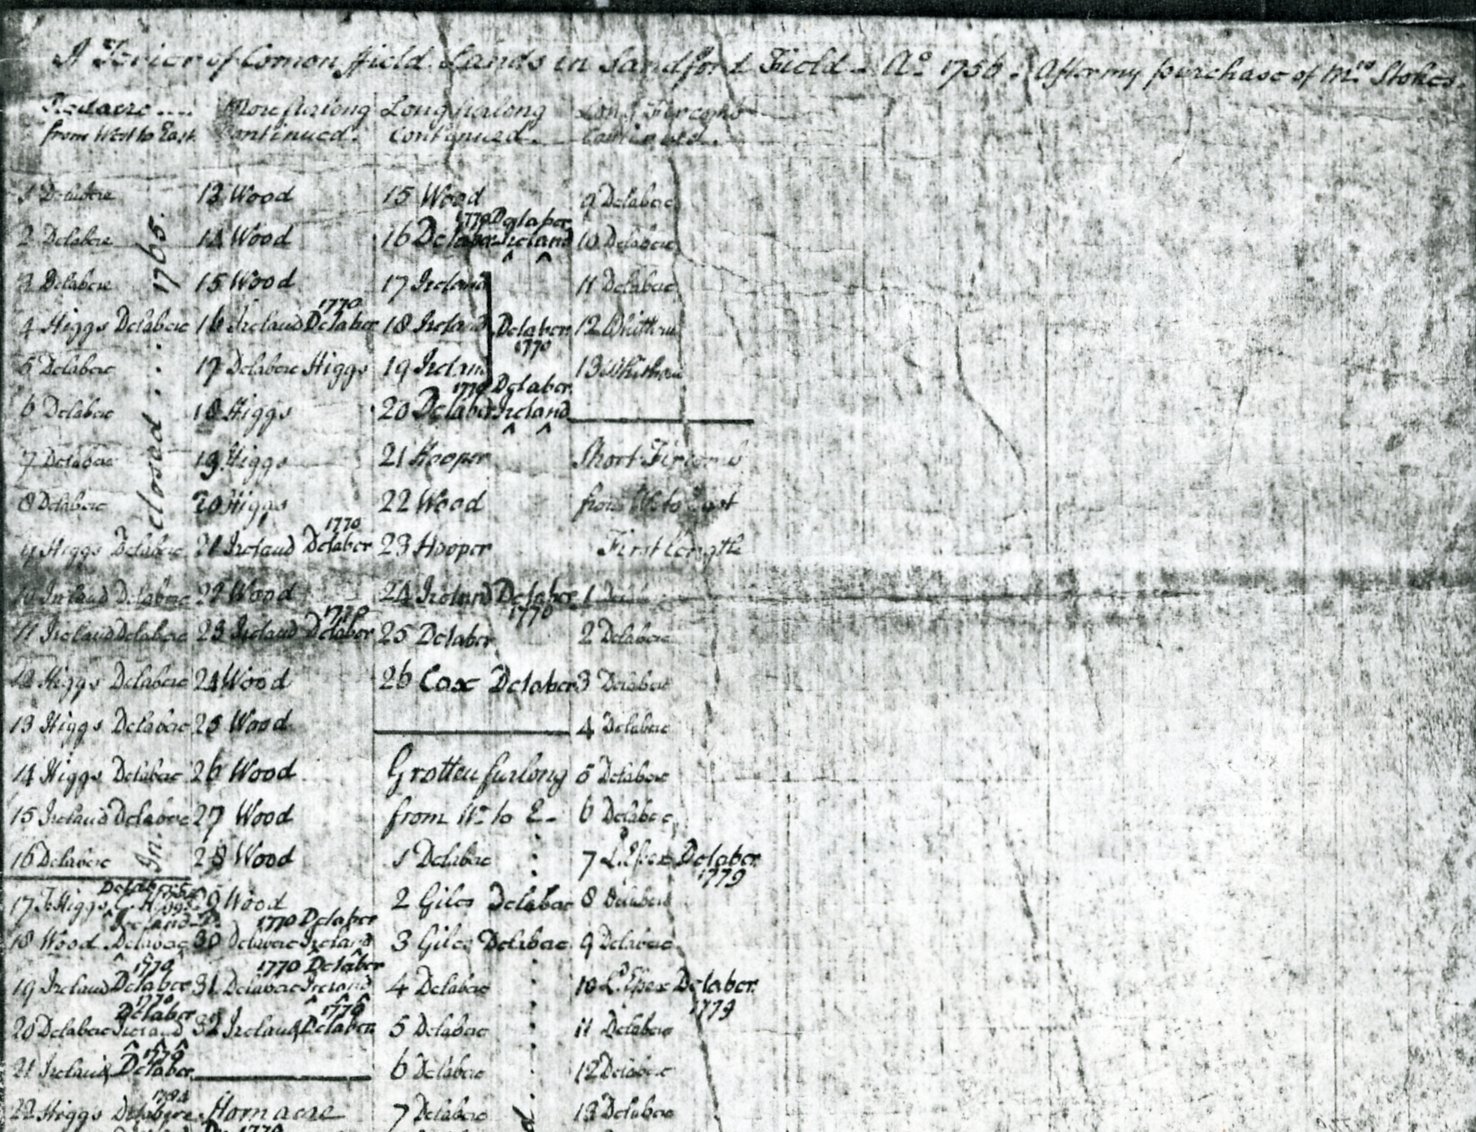 A Terier of Comon ffield Lands in Sandford Field - Ao. 1756. After my purchase of Mrs. Stokes.
Redacre ....
from West to East
1 Delabere
2 Delabere
3 Delabere
4 Higgs Delabere
5 Delabere
6 Delabere
7 Delabere
8 Delabere
9 Higgs Delabere
10 Ireland Delabere
11 Ireland Delabere
12 Higgs Delabere
13 Higgs Delabere
14 Higgs Delabere
15 Ireland Delabere
16 Delabere
In closed .... 1765.
17 Higgs
18 Wood Delabere
1770
19 Ireland Delaber
1770
Delaber
20 Delabere Ireland
1770
21 Ireland Delaber
22 Higgs Delabere
furlong
Continued.
13 Wood
14 Wood
15 Wood
1770
16 Ireland Delaber
17 Delabere Higgs
18 Higgs
19 Higgs
20 Higgs
1770
21 Ireland Delaber
22 Wood
1770
23 Ireland Delaber
24 Wood
25 Wood
26 Wood
27 Wood
28 Wood
29 Wood
1770 Delaber
30 Delabere Ireland
1770 Delaber
31 Delabere Ireland
1770
32 Ireland Delaber
Horn acre
1770
Long furlong
Continued.
15 Wood
1770 Delaber
16 Delaber Ireland
17 Ireland
18 Ireland
19 Ireland
Delaber
1770
1770 Delaber
20 Delaber Ireland
21 Hooper
22 Wood
23 Hooper
24 Ireland Delaber
1770
25 Delaber
26 Cox Delaber
Grotten furlong
from W. to E.
1 Delabere
2 Giles Delabere
3 Giles Delabere
4 Delabere
5 Delabere
6 Delabere
7 Delabere
Long Fircombs
Continued.
9 Delabere
10 Delabere
11 Delabere
12 Whithorn
13 Whithorn
Short Fircombs
from W. to East
First length
1
2 Delabere
3 Delabere
4 Delabere
5 Delabere
6 Delabere
7 Delaber
1779
8 Delabere
9 Delabere
10 Delaber
1779
11 Delabere
12 Delabere
13 Delabere